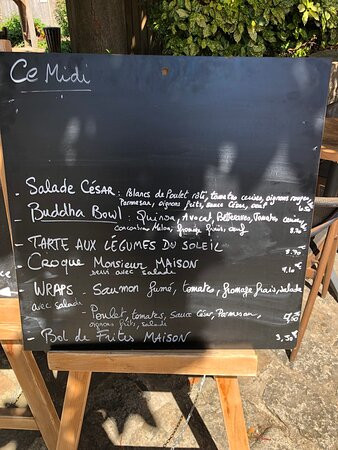 Ce Midi
- Salade César : Blancs de Poulet rôti, tomates cerises, oignons rouges
Parmesan, oignons frits, sauce César, oeuf
- Buddha Bowl : Quinoa, Avocat, Betteraves, Tomates cerises,
fromage frais, oeuf
- TARTE AUX LÉGUMES DU SOLEIL
- Croque Monsieur MAISON
servi avec salade
- WRAPS - Saumon fumé, tomates, fromage frais, salade
avec salade
- Poulet, tomates, Sauce César, Parmesan,
oignons frits, salade
- Bol de Frites MAISON 3.50€